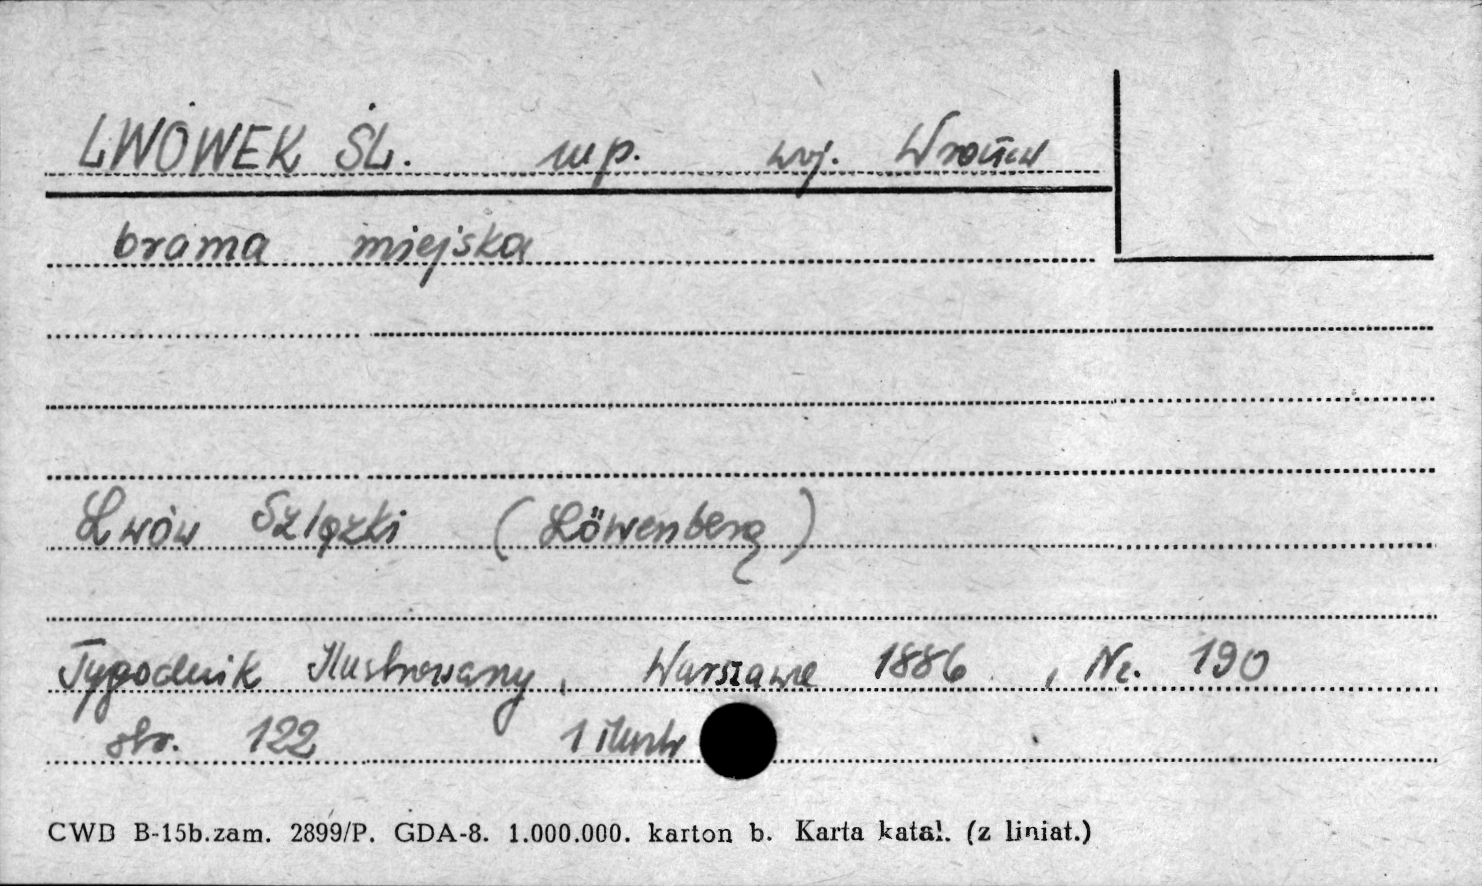 LWÓWEK ŚL. mp. woj. Wrocław
brama miejska
Lwów Szlązki (Löwenberg)
Tygodnik Ilustrowany, Warszawa 1886, Nr. 190
str. 122 1 ilustr
CWD B-15b.zam. 2899/P. GDA-8. 1.000.000. karton b. Karta katal. (z liniat.)